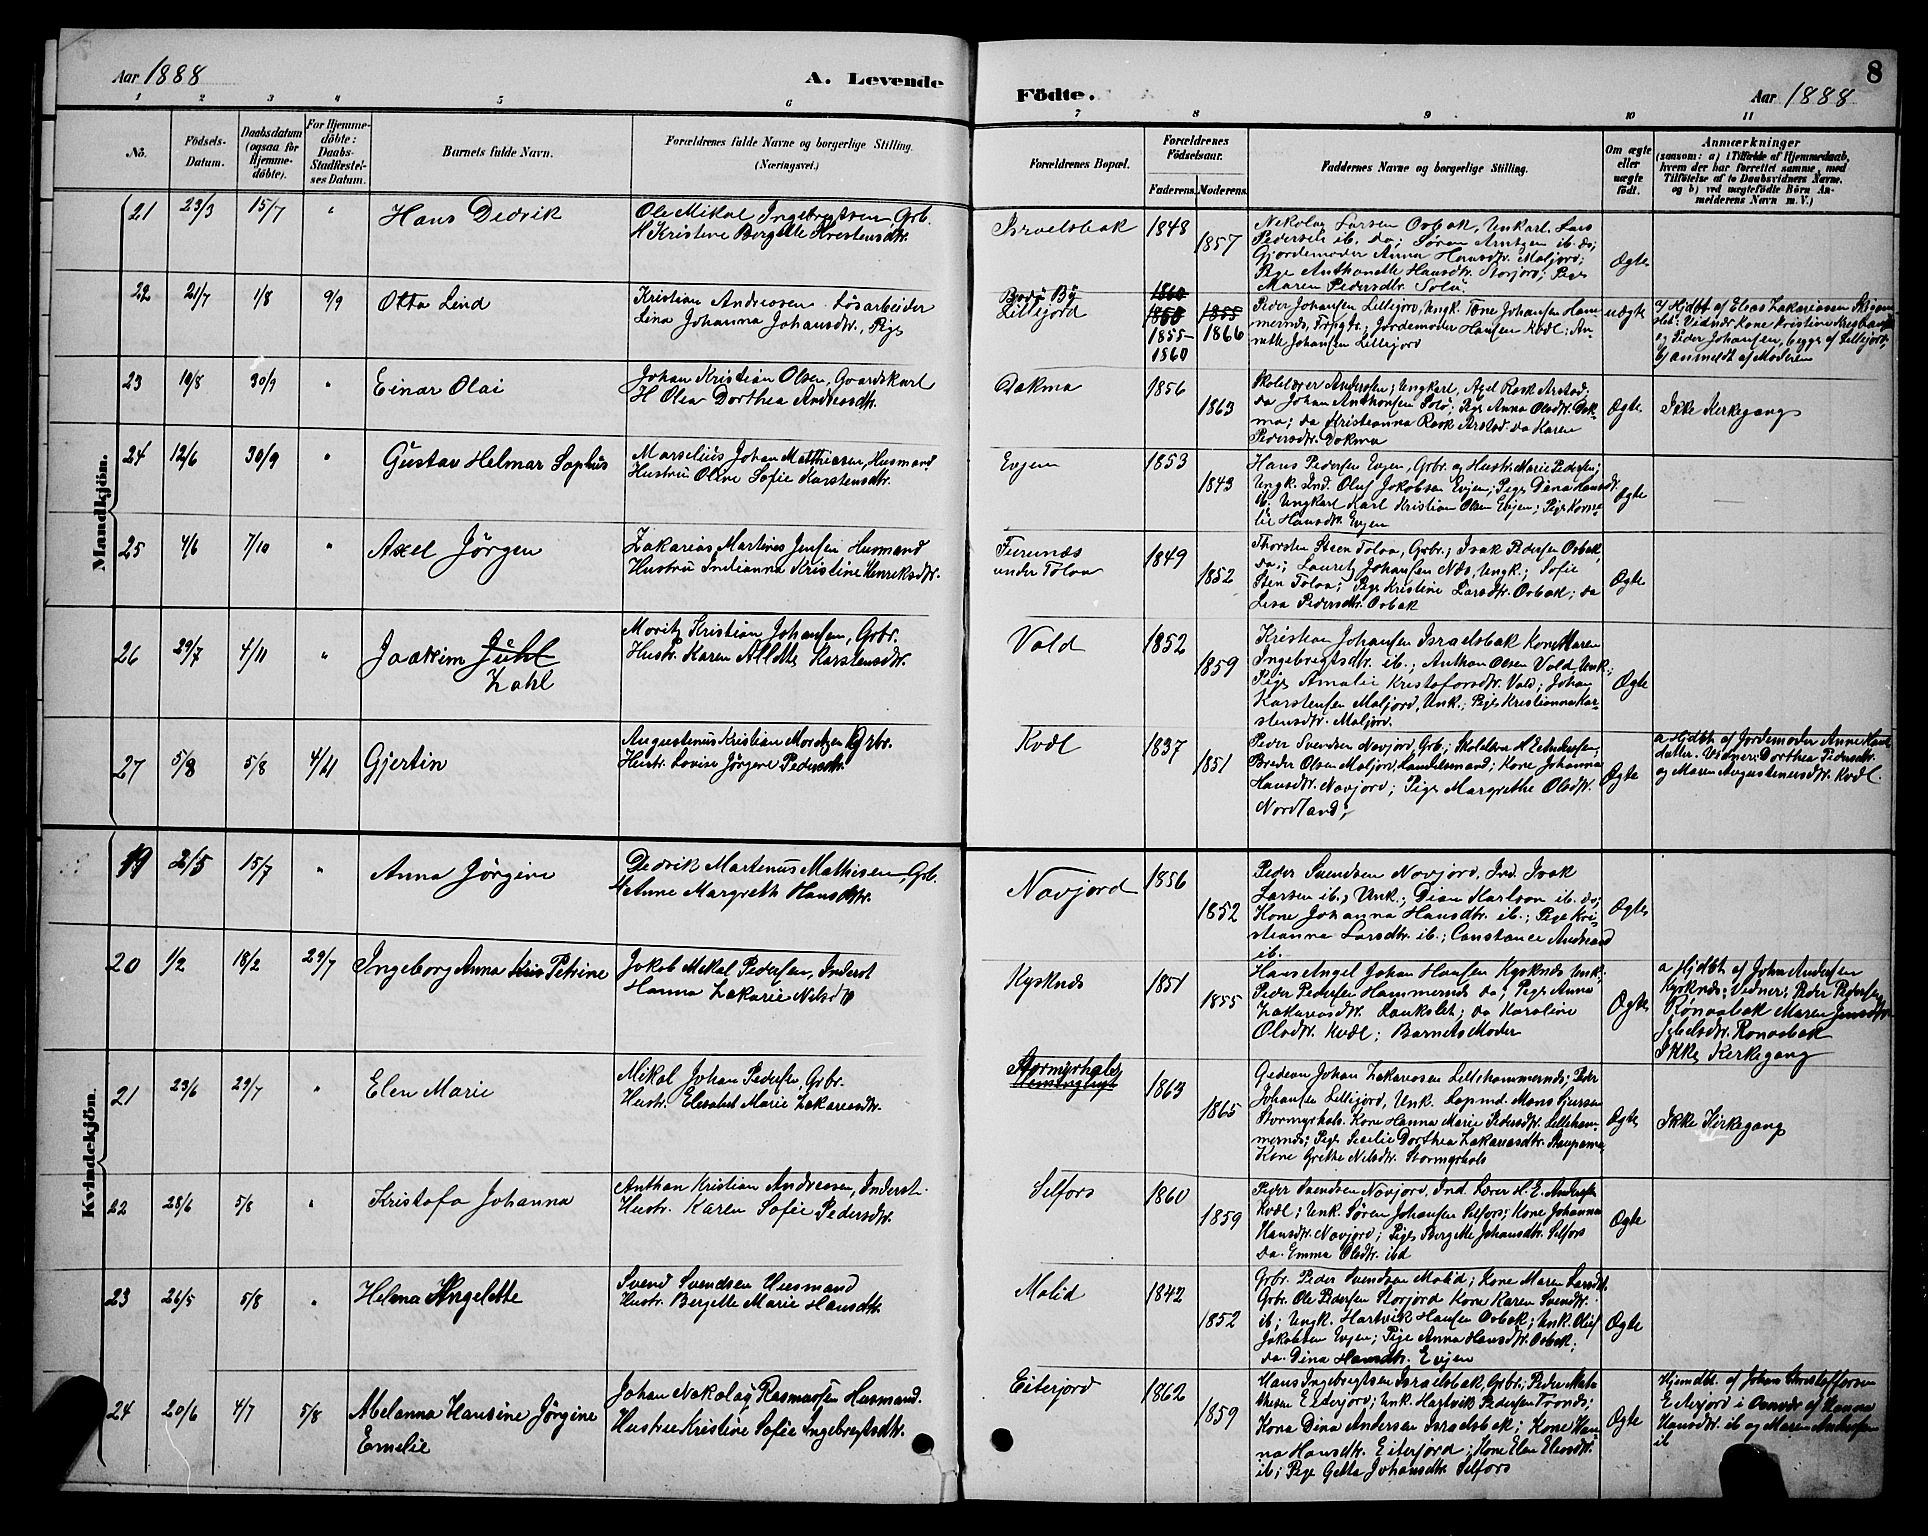 Aar 1888
A. Levende
Födte.
Aar 1888
8
1 2 3 4 5 6 7 8 9 10 11
No.
Födsels-
Datum.
Daabsdatum
(ogsaa for
Hjemme-
döbte).
For Hjemme-
döbte:
Daabs-
Stadfæstel-
ses Datum.
Barnets fulde Navn.
Forældrenes fulde Navne og borgerlige Stilling.
(Næringsvei.)
Forældrenes Bopæl.
Forældrenes
Födselsaar.
Faderens. Moderens.
Faddernes Navne og borgerlige Stilling.
Om ægte
eller
uægte
födt.
Anmærkninger
(saasom: a) i Tilfælde af Hjemmedaab,
hvem der har forrettet samme, med
Tilföielse af to Daabsvidners Navne,
og b) ved uægtefödte Börn An-
melderens Navn m. V.)
Mandkjön.
21 23/3 15/7 " Hans Dedvik
Ole Mikal Ingebregtsen, Grb.
H Kristine Bergitte Krestensdtr.
Israelsbak 1848 1857
Nekolai Larsen Osbak, Unkarl. Lars
Pedersen ib. do; Søren Arntzen ib. do;
Gjordemoder Anna Hansdtr. Maljord;
Pige Anthonette Hansdtr. Storjord; Pige
Maren Pedersdtr. Tolå
Ægte
22 21/7 1/8 9/9 Otto Lind
Kristian Andreasen Løsarbeider
Lina Johanna Johansdtr., Pige
Bodø By
Lillejord
1860
1855-
1860
1855
1866
Peder Johansen Lillejord, Ungk. Tøne Johansen Ham-
mernæs, Jordemoder Hansen Kvæl; An-
nette Johansen Lillejord
uægte
a/ Hjdbt af Elias Zakariassen
Vidner Kone Kristine
og Peder Johansen, begge af Lillejord
b/ anmeldt af Moderen
23 19/8 30/9 " Einar Olai
Johan Kristian Olsen, Gaardskarl
H Olea Dorthea Andreasdtr.
Dokma 1856 1863
Skolelærer Andersen; Ungkarl, Axel Rask Arstad;
do Johan Anthonsen Tolå; Pige Anna Olsdtr. Dok-
ma; do Kristianna Rask Arstad do Karen
Pedersdtr. Dokma
Ægte
Ikke Kerkegang
24 12/6 30/9 " Gustav Helmar Sophus
Marselius Johan Matthiasen, Husmand
Hustru Oline Sofie Karstensdtr.
Evjen 1853 1843
Hans Pedersen Evjen, Grbr. og Hustr. Marie Pedersen;
Ungk. Ind. Oluf Jakobsen Evjen; Pige Dina Hansdtr.
ib. Ungkarl Karl Kristian Olsen Evjen; Pige Korne-
lie Hansdtr. Evjen
Ægte
25 4/6 7/10 " Axel Jörgen
Zakarias Martines Jensen Husmand
Hustru Indianna Kristine Henriksdtr.
Furunæs
under Tolaa
1849 1852
Thorsten Steen Tolaa, Grbr.; Isak Pedersen Osbak,
do.; Lauritz Johansen Næs, Ungk.; Sofie
Sten Tolaa; Pige Kristine Larsdtr. Osbak; do
Lesa Pedersdtr. Osbak
Ægte
26 29/7 4/11 " Joakim Juhl
Zahl
Moritz Kristian Johansen, Grbr.
Hustr. Karen Alette Karstensdtr.
Vold 1852 1859
Kristian Johansen Israelsbak Kone Maren
Ingebregtsdtr. ib.; Anthon Olsen Vold, Unk.;
Pige Amalie Kristofersdtr. Vold; Johan
Karstensen Maljord, Unk.; Pige Kristianna Kar-
stensdtr. Maljord.
Ægte
27 5/8 5/8 4/11 Gjertin
Augustenus Kristian Moritzen Grbr.
Hustr. Lovise Jørgine Pedersdtr.
Kvæl 1837 1851
Peder Svendsen Novjord, Grb; Skolelærer H E Andersen,
Breder Olsen Maljord, Handelsmand; Kone Johanna
Hansdtr. Novjord; Pige Margrethe Olsdtr.
Nordland;
Ægte
a Hjdbt af Jordemoder Anne Hans-
datter. Vidner: Dorthea Pedersdtr.
og Maren Augustenusdtr. Kvæl.
Kvindekjön.
19 2/5 15/7 " Anna Jørgine
Dedvik Martenus Mathisen Grb.
H Anne Margreth Hansdtr.
Novjord 1856 1852
Peder Svendsen Novjord, Ind. Isak
Larsen ib., Unk.; Dian Karlson ib. do;
Kone Johanna Hansdtr. ib.; Pige Kri-
stianna Larsdtr. ib.; Constance
ib.
Ægte
20 1/2 18/2 29/7 Ingeborg Anna Kris Petrine
Jakob Mekal Pedersen, Inderst
Hanna Zakarie Nilsdtr
Kysknæs 1851 1855
Hans Angel Johan Hansen Kysknæs Unk.
Peder Pedersen Hammernæs do; Pige Anna
Zakariasdtr. Laukslet; do Karoline
Olsdtr. Kvæl; Barnets Moder
Ægte
a Hjdbt af John Andersen
Kysknæs; Vidner: Peder Pedersen
Rönaabak Maren Jensdtr
Rönaabak
Ikke Kerkegang
21 23/6 29/7 " Elen Marie
Mikal Johan Pedersen, Grbr.
Hustr. Elisabet Marie Zakariasdtr.
Stormyrhals
1863 1865
Gedeon Johan Zakariasen Lillehammernæs; Peder
Johansen Lillejord, Unk. Lapmd. Mons Sjursen
Stormyrhals. Kone Hanna Marie Pedersdtr. Lilleham-
mernæs; Pige Secelie Dorthea Zakariasdtr.
Kone Grethe Nilsdtr. Stormyrhals
Ægte
Ikke Kirkegang
22 28/6 5/8 " Kristofa Johanna
Anthon Kristian Andreasen, Inderst.
Hustr. Karen Sofie Pedersdtr.
Selfors 1860 1859
Peder Svendsen Novjord, Ind. Lærer H. E. Andersen
Kvæl; Unk. Søren Johansen Selfors; Kone Johanna
Hansdtr. Novjord; Pige Bergitte Johansdtr. Selfors
do. Emma Olsdtr. ibd
Ægte
23 26/5 5/8 " Helma Angelette
Svend Svendsen Husmand
Hustr. Bergitte Marie Hansdtr.
Molid 1842 1852
Grbr. Peder Svendsen Molid; Kone Maren Larsdtr.
Grbr. Ole Pedersen Storjord Kone Karen Svendtr.
ib; Ungk. Hartvik Hansen Osbak; Unk. Oluf
Jakobsen Evjen; Pige Anna Hansdtr. Osbak;
do. Dina Hansdtr. Evjen
Ægte
24 20/6 4/7 5/8 Abelanna Hansine Jörgine
Emelie
Johan Nokolay Rasmussen Husmand.
Hustrue Kristine Sofie Ingebregtsdtr.
Eiterjord 1862 1859
Hans Ingebregtsen Israelsbak, Grbr.; Peder Mat-
thesen Eiterjord; Unk. Hartvik Pedersen Trones;
Kona Dina Andersen Israelsbak; Kone Han-
na Hansdtr. Eiterjord; Kone Elen Eliasdtr.
ib; Pige Getta Johansdtr. Selfors
Ægte
Hjemdbt. af Johan Kristoffersen
Eiterjord i Overvær af Hanna
Hansdtr. ib og Maren Andersen
ib